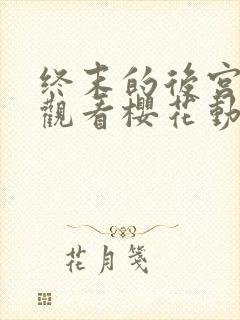 終末的後宮
觀看櫻花動
花月箋